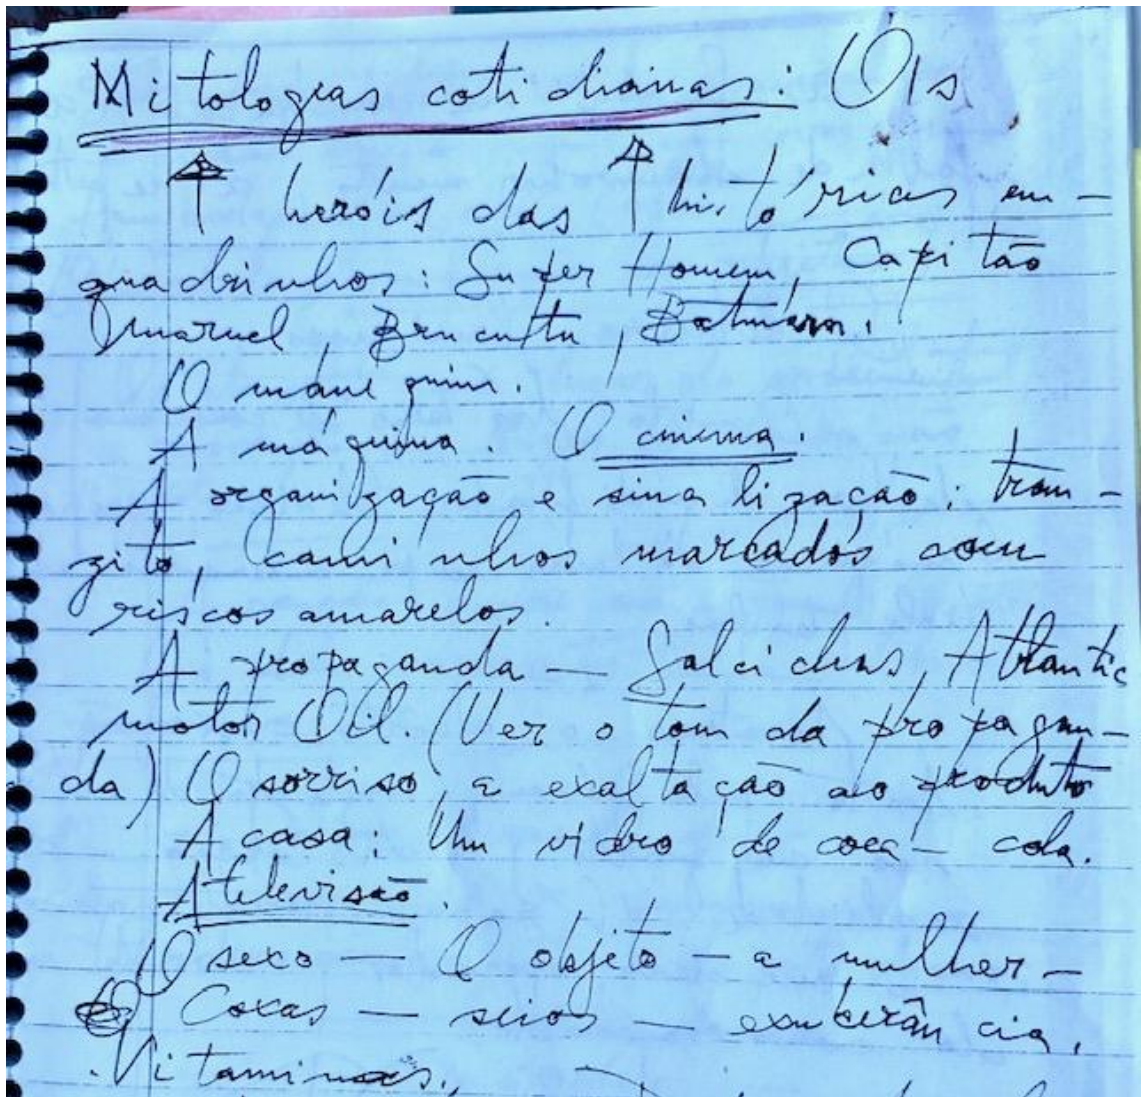 Mitologias cotidianas: Os
heróis das históricas em-
quadrinhos: Super Homem, Capitão
marvel, Brucutu, Batman.
O manequim.
A máquina. O cinema.
A organização e sinalização: tran-
zito, caminhos marcados com
riscos amarelos.
A propaganda — Salcichas, Atlantic
motor Oil. (Ver o tom da propagan-
da) O sorriso, a exaltação ao produto
A casa: Um vidro de coca-cola.
A televisão.
O sexo — O objeto — a mulher —
Coxas — seios — exuberância.
Vitaminas.